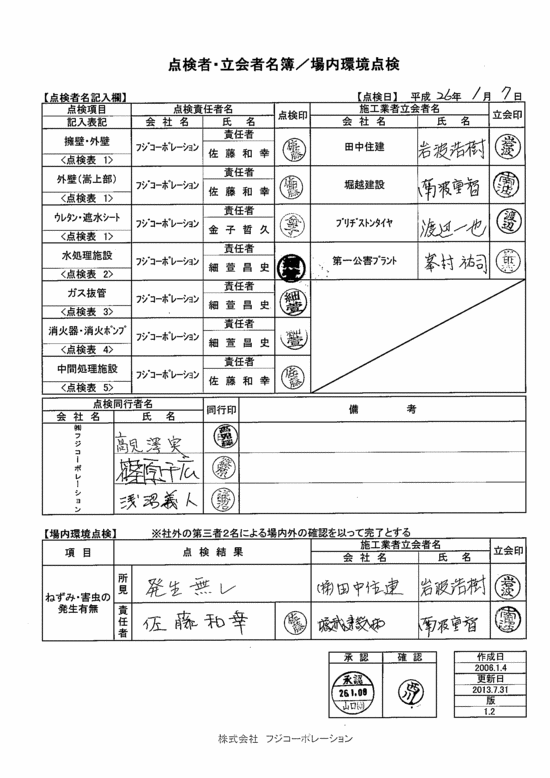 点検者・立会者名簿／場内環境点検
【点検者名記入欄】 【点検日】 平成 26年 1月 7日
点検項目 点検責任者名 点検印 施工業者立会者名 立会印
記入表記 会社名 氏名 会社名 氏名
擁壁・外壁 フジコーポレーション 責任者 佐藤和幸 佐藤 田中住建 岩波浩樹 岩波
<点検表 1>
外壁(嵩上部) フジコーポレーション 責任者 佐藤和幸 佐藤 堀越建設 南波重智 南波
<点検表 1>
ウレタン・遮水シート フジコーポレーション 責任者 金子哲久 ブリヂストンタイヤ 渡辺一也 渡辺
<点検表 1>
水処理施設 フジコーポレーション 責任者 細萱昌史 細萱 第一公害プラント 峯村祐司
<点検表 2>
ガス抜管 フジコーポレーション 責任者 細萱昌史 細萱
<点検表 3>
消火器・消火ポンプ フジコーポレーション 責任者 細萱昌史 細萱
<点検表 4>
中間処理施設 フジコーポレーション 責任者 佐藤和幸 佐藤
<点検表 5>
点検同行者名 同行印 備考
会社名 氏名
㈱フジコーポレーション
高見澤実
篠原
浅沼義人
【場内環境点検】 ※社外の第三者2名による場内外の確認を以って完了とする
項目 点検結果 施工業者立会者名 立会印
会社名 氏名
ねずみ・害虫の発生有無 所見 発生無し ㈲田中住建 岩波浩樹 岩波
責任者 佐藤和幸 佐藤 南波重智 南波
承認 確認 作成日
承認 26.1.08 山口 西川 2006.1.4
更新日
2013.7.31
版
1.2
株式会社 フジコーポレーション